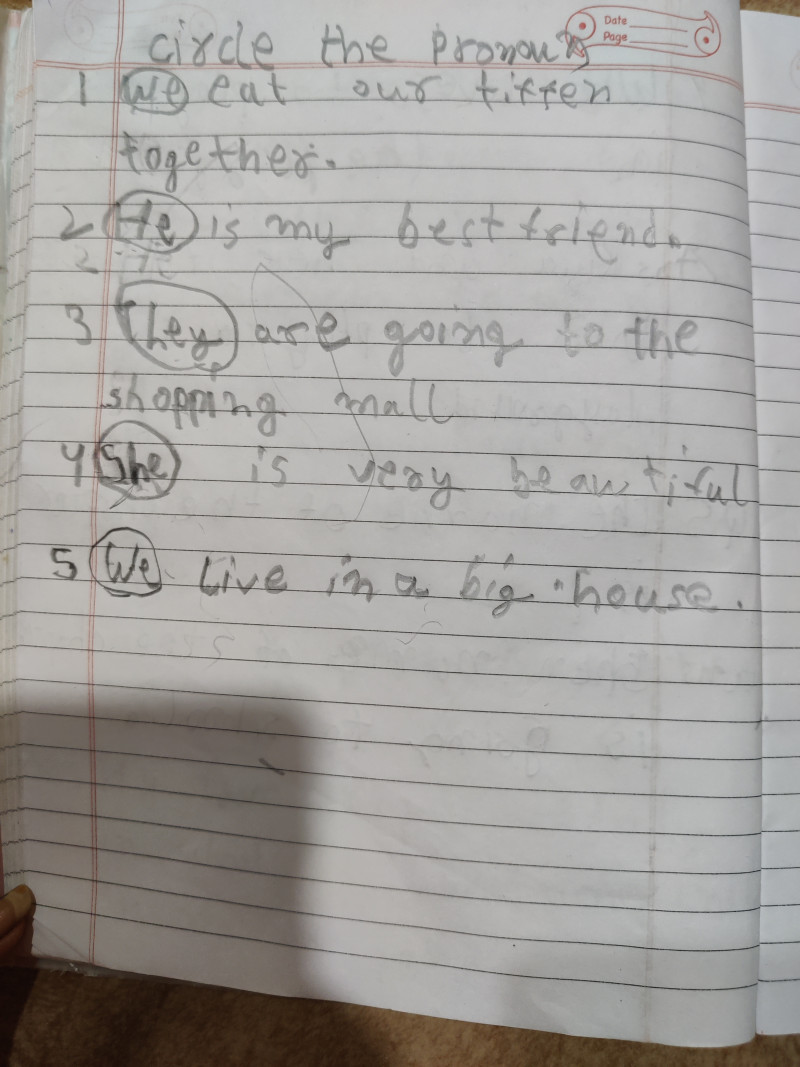 Date
Page
circle the pronouns
1 We eat our tiffen
together.
2 He is my best friend.
3 They are going to the
shopping mall
4 She is very beautiful
5 We Live in a big house.